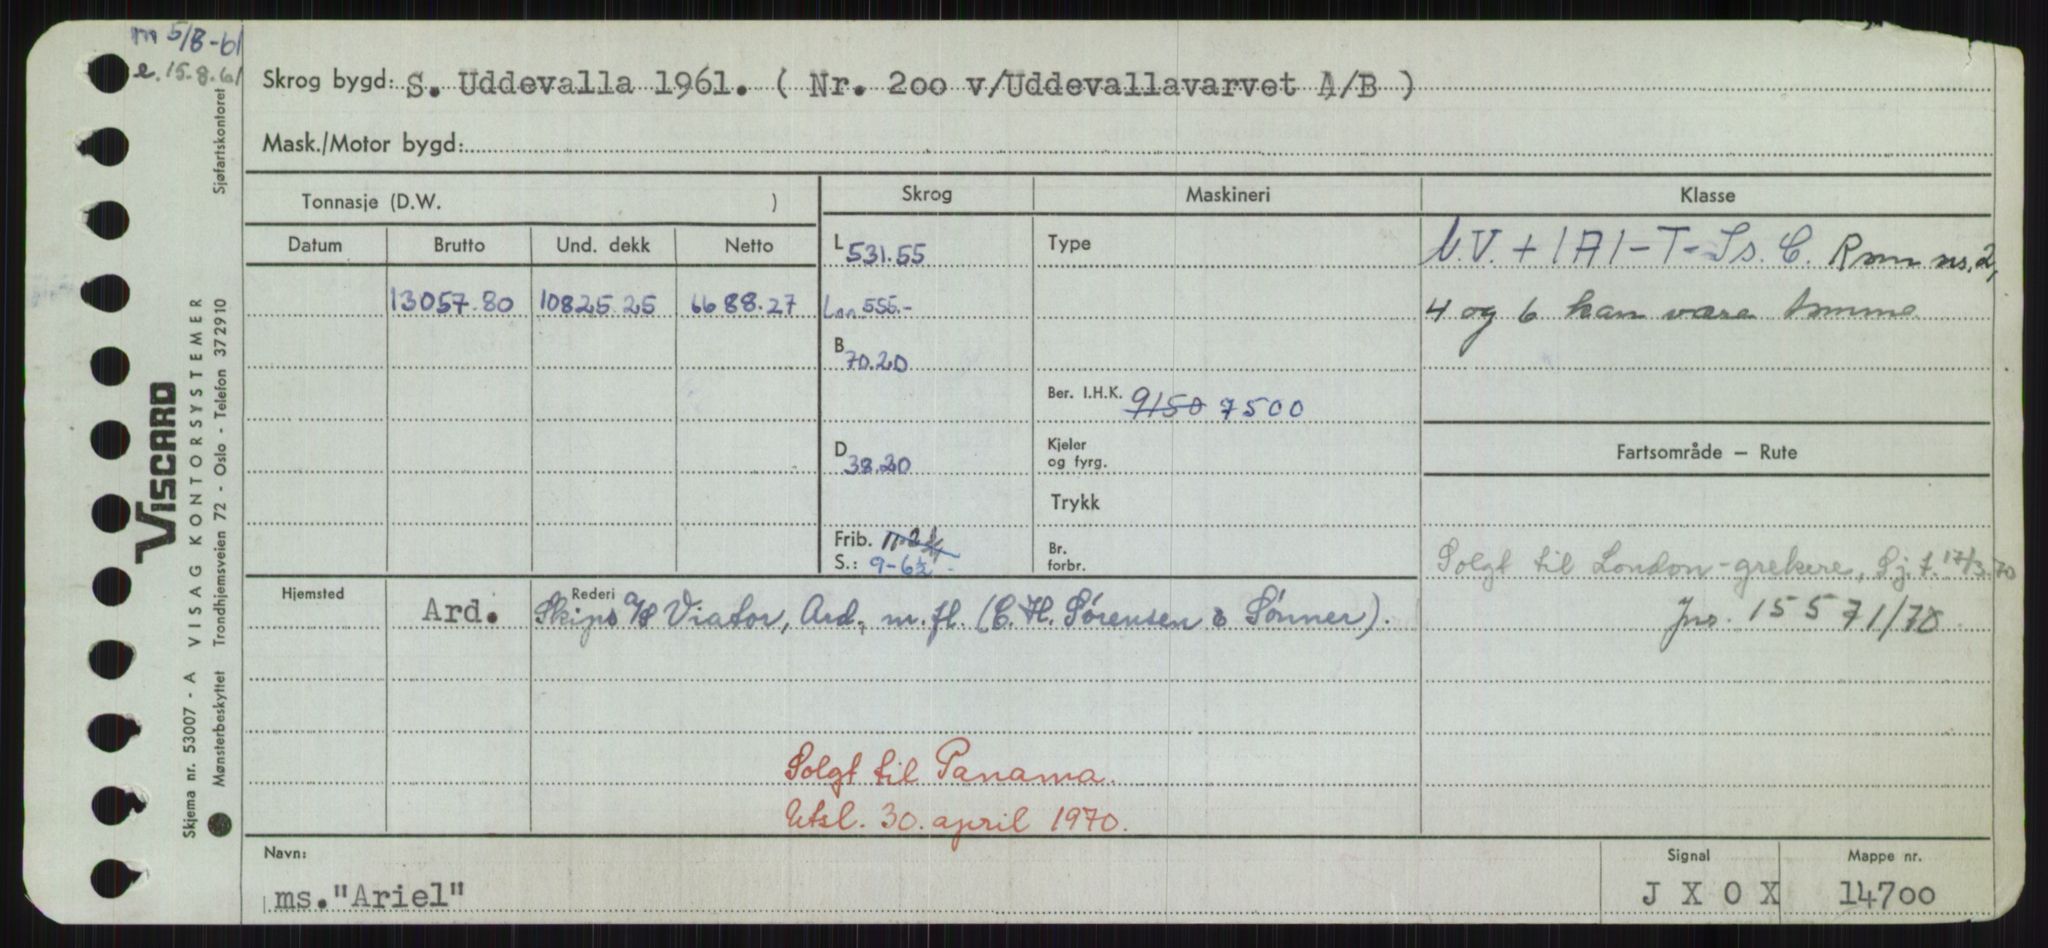 m 5/8-61
e. 15.8.61
Skrog bygd: S. Uddevalla 1961. ( Nr. 200 v/Uddevallavarvet A/B )
Mask./Motor bygd:
Tonnasje (D.W. )
Skrog
Maskineri
Klasse
Datum
Brutto
Und. dekk
Netto
L 531.55
Type
V. + 1A1-T-Is. C. Rom nr. 2,
13057.80 10825.25 6688.27
555.-
4 og 6 kan være tomme
B 70.20
Ber. I.H.K. 9150 7500
D 38.20
Kjeler
og fyrg.
Fartsområde – Rute
Trykk
Frib.
S.: 9-6½
Br.
forbr.
Solgt til London-grekere, Sj.t. 17/3.70
Jnr. 15571/70
Hjemsted
Ard.
Rederi
Skips A/S Viator, Ard., m.fl. (C. H. Sørensen & Sønner).
Solgt til Panama.
Utsl. 30. april 1970.
Navn:
ms. "Ariel"
Signal
J X O X
Mappe nr.
14700
VISCARD
Skjema nr. 53007 - A VISAG KONTORSYSTEMER
Mønsterbeskyttet Trondhjemsveien 72 - Oslo - Telefon 372910 Sjøfartskontoret